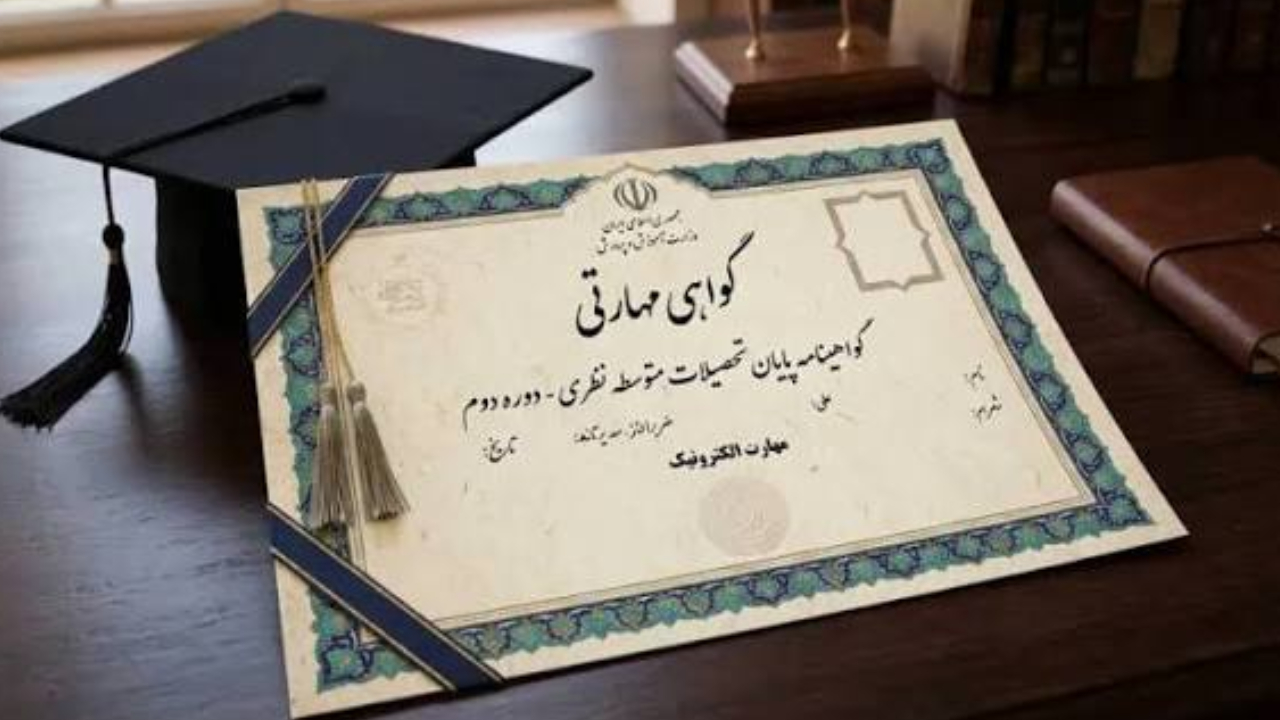 جمهوری اسلامی ایران
وزارت آموزش و پرورش
گواهی مهارتی
گواهینامه پایان تحصیلات متوسطه نظری - دوره دوم
نام:
علی
تاریخ:
مهارت الکترونیک